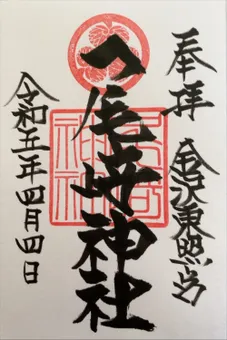 奉拝 金沢東照宮
尾﨑神社
令和五年四月四日